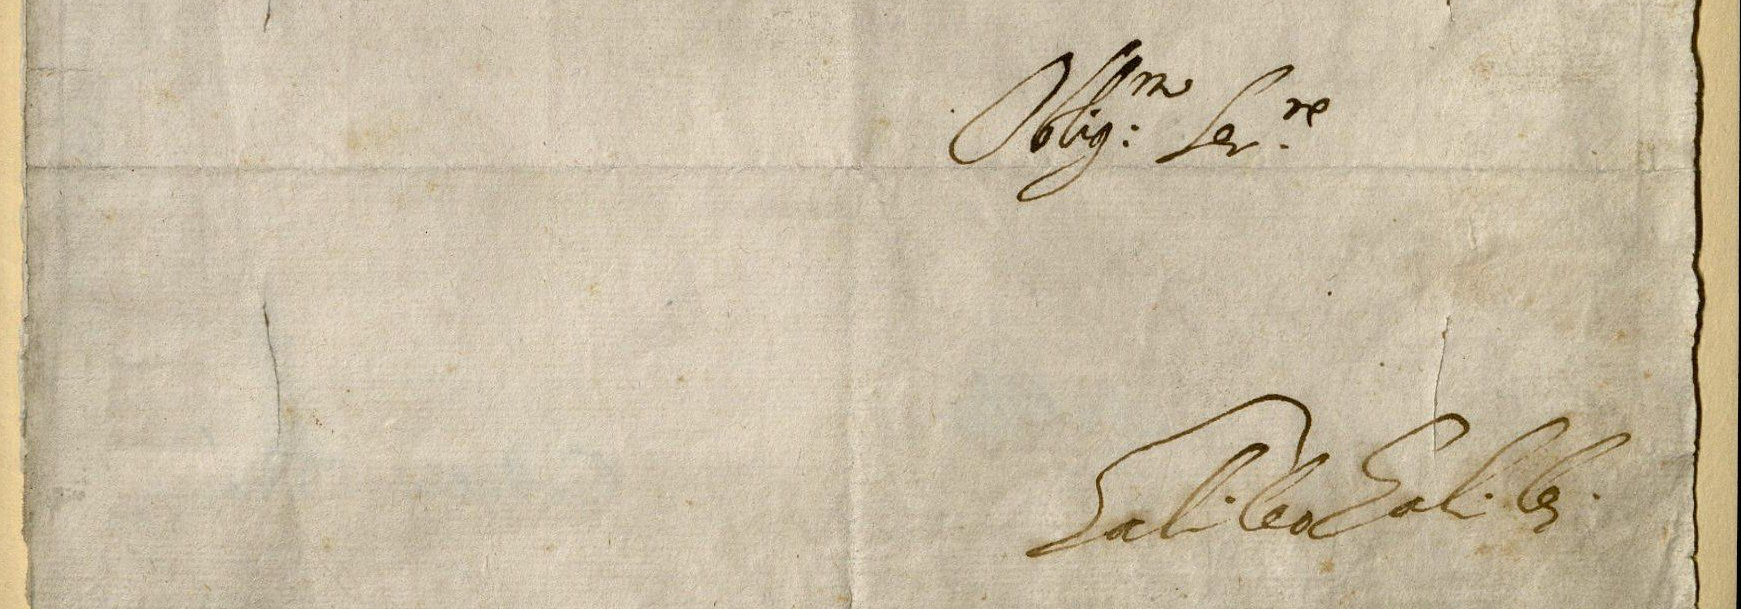 Oblig:ᵐᵒ Ser.ʳᵉ
Galileo Galilei.